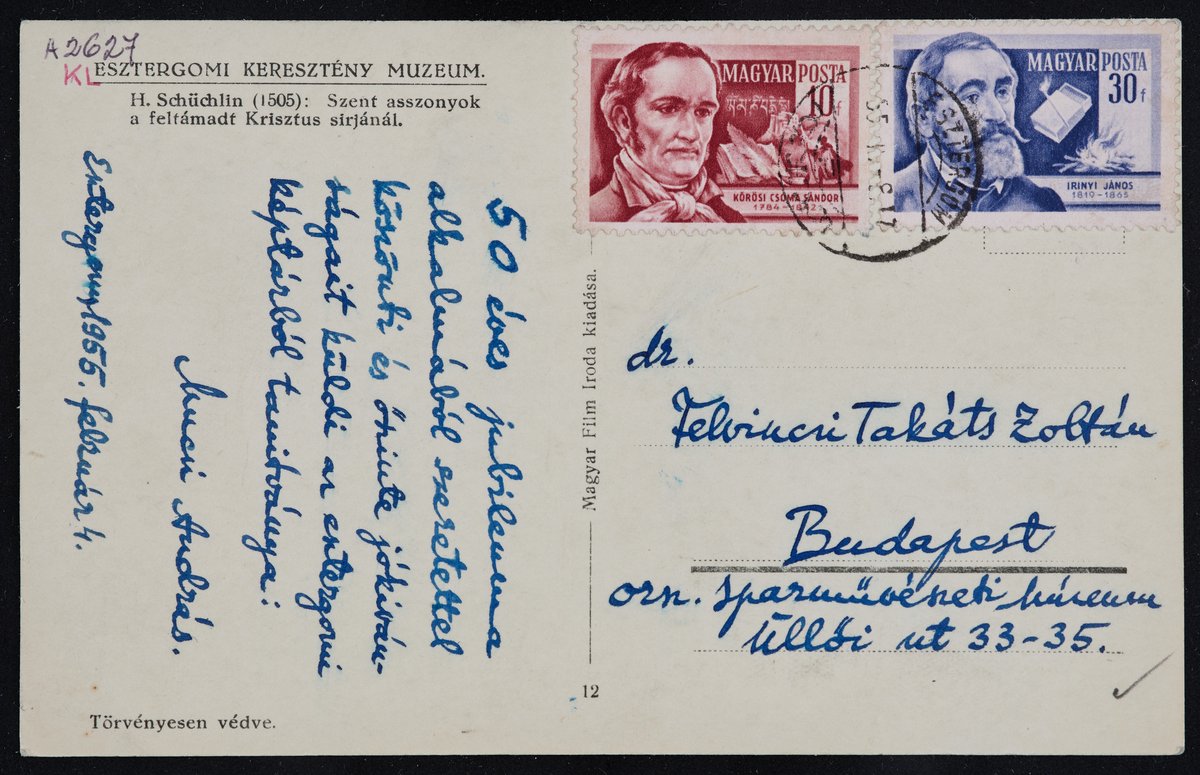 A 2627
KL
ESZTERGOMI KERESZTÉNY MUZEUM.
H. Schüchlin (1505): Szent asszonyok
a feltámadt Krisztus sirjánál.
50 éves jubileuma
alkalmából szeretettel
köszönti és őszinte jókiván-
ságait küldi az esztergomi
képtárból tanitványa:
Mucsi András.
Esztergom, 1955. február 4.
Törvényesen védve.
Magyar Film Iroda kiadása.
12
MAGYAR POSTA
10f
KŐRÖSI CSOMA SÁNDOR
1784-1842
MAGYAR POSTA
30f
IRINYI JÁNOS
1819-1865
ESZTERGOM
dr.
Felvinczi Takáts Zoltán
Budapest
orsz. Iparművészeti Múzeum
Üllői ut 33-35.